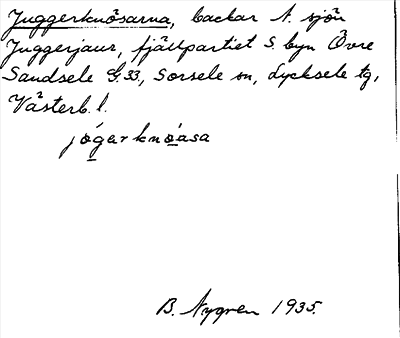 Juggerknösarna, backar N. sjön
Juggerjaur, fjällpartiet S. byn Övre
Sandsele G. 33, Sorsele sn, Lycksele tg,
Västerb. l.
jógarknòasa
B. Nygren 1935.